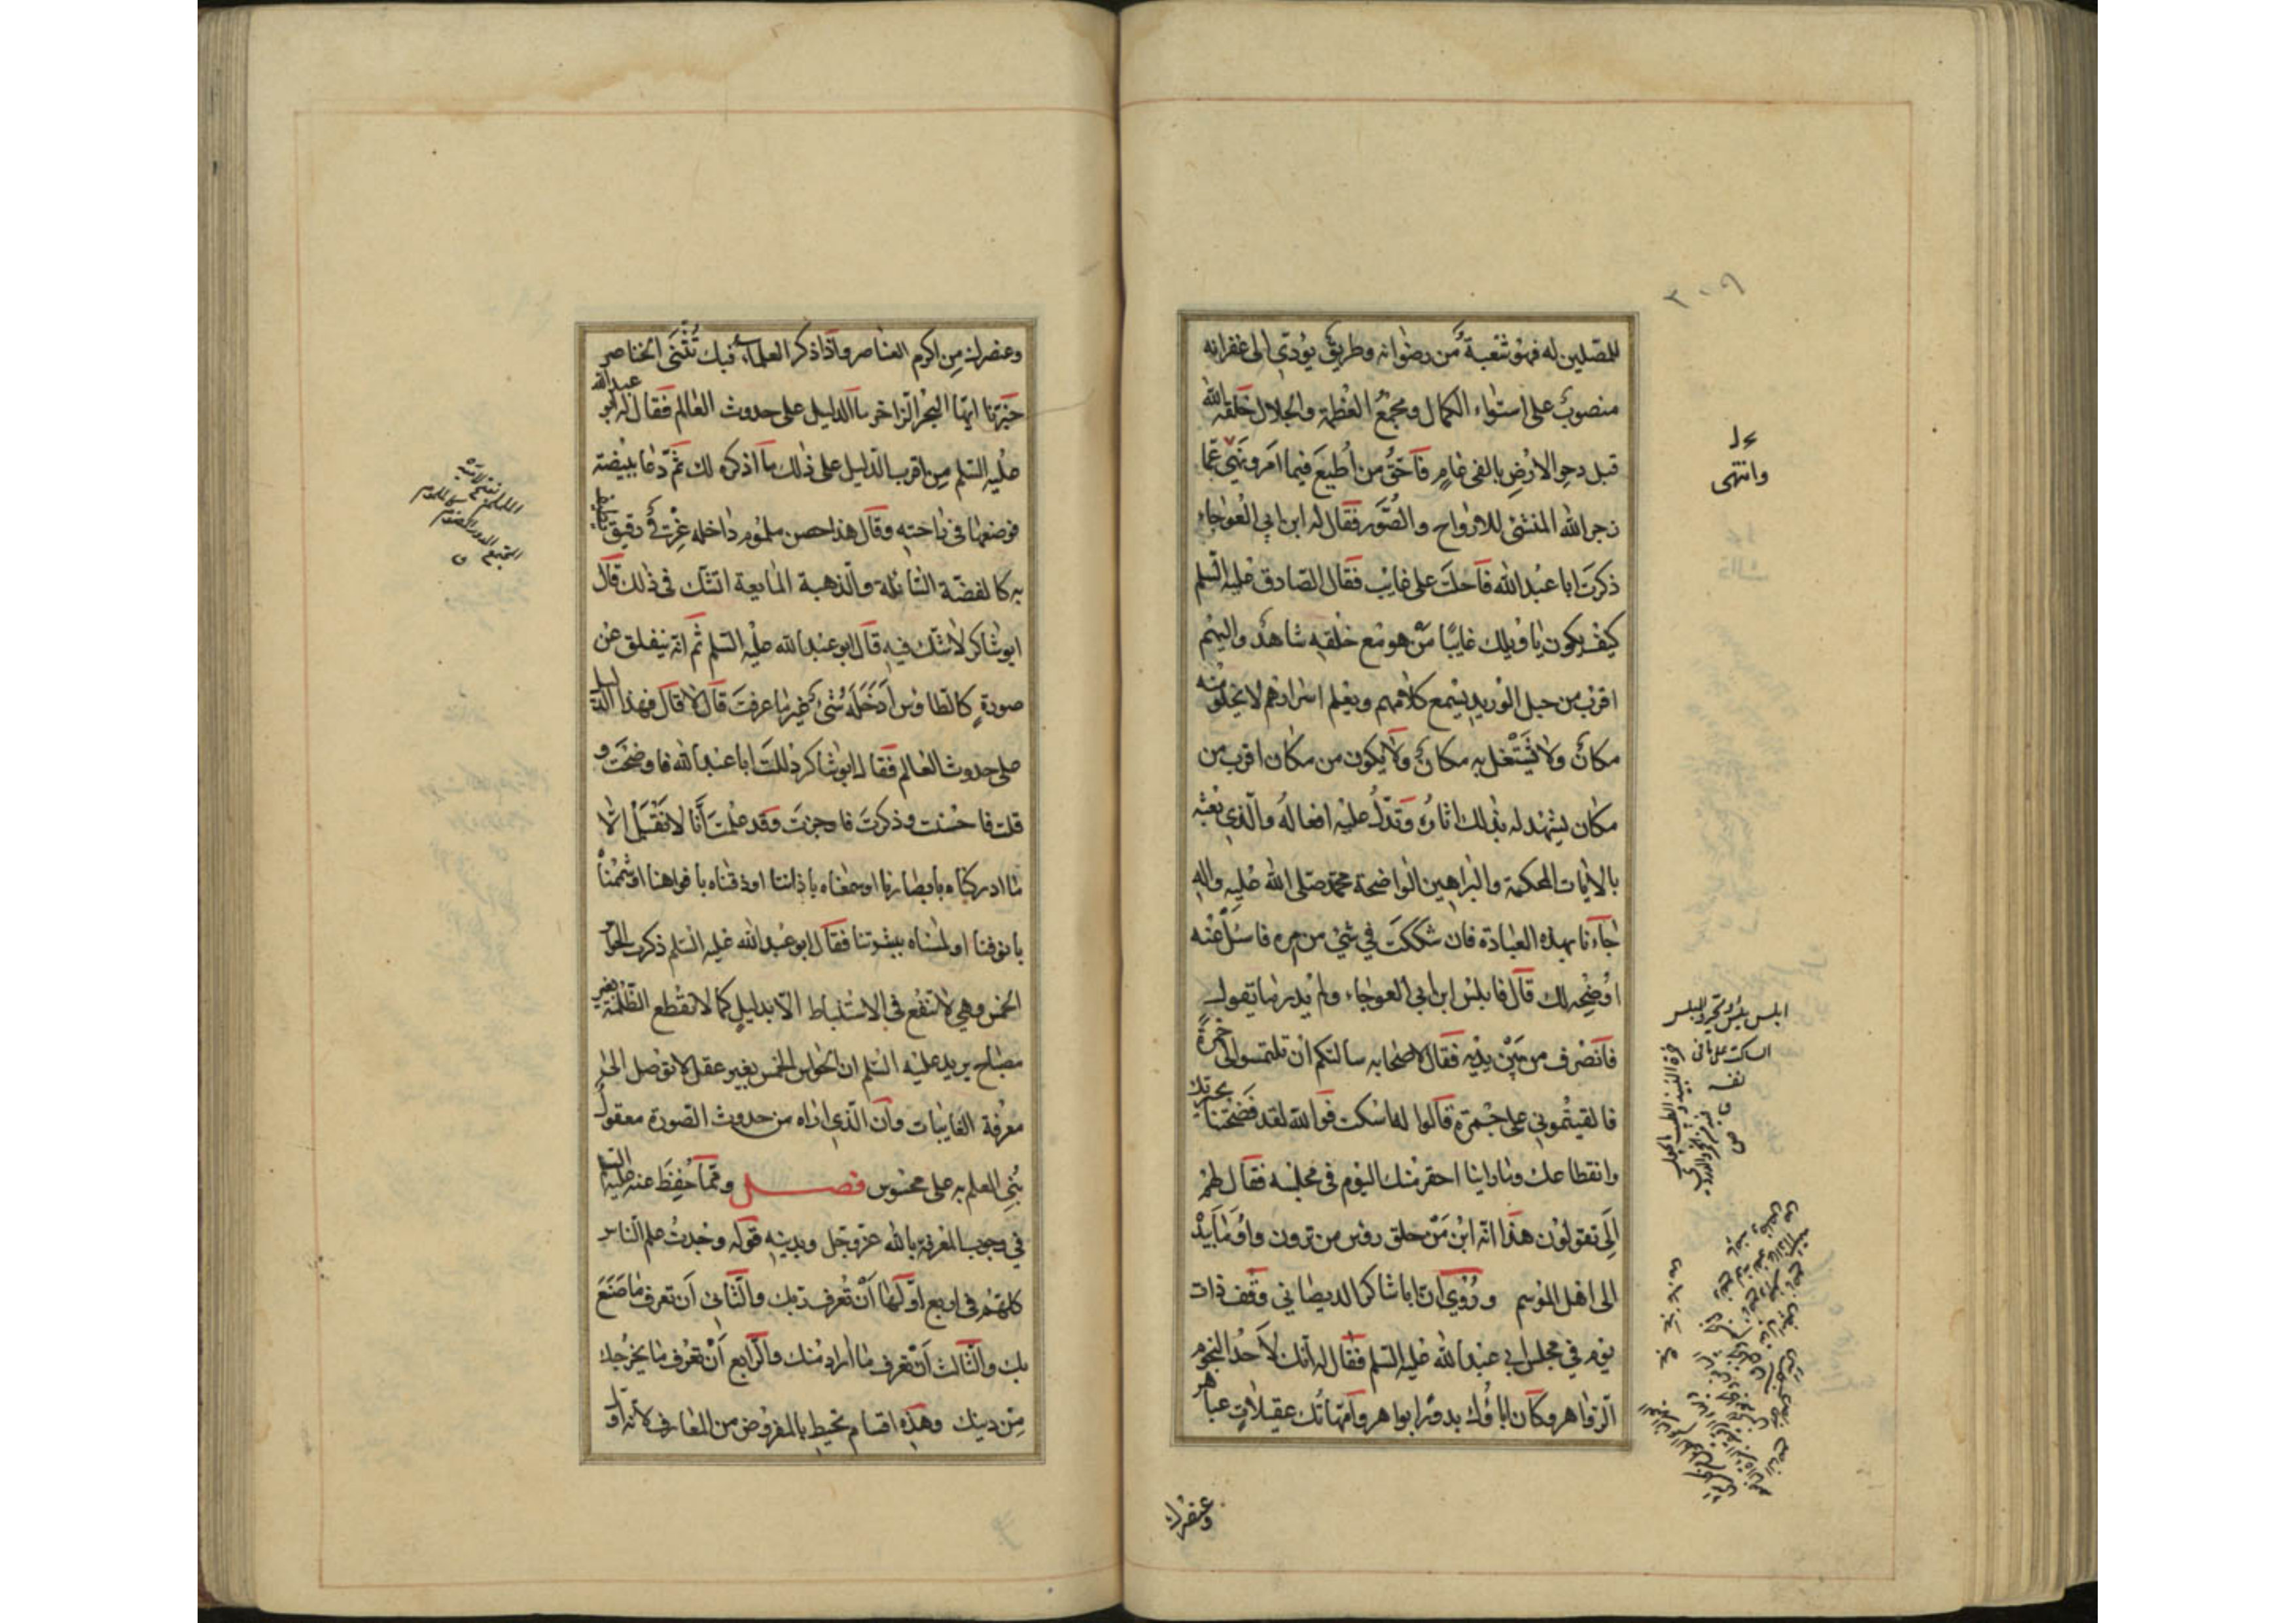 ٣٠٩
للمصلين له فهو شعبة من رضوانه وطريق يؤدي الى غفرانه
منصوب على استواء الكمال ومجمع العظمة والجلال خلقه الله
قبل دحو الارض بالفى عام فاحق من اطيع فيما امر ونهى عما
زجر الله المنشئ للارواح والصور فقال له ابن ابي العوجاء
ذكرت ابا عبد الله فاحلت على غائب فقال الصادق عليه السلم
كيف يكون يا ويلك غايبا من هو مع خلقه شاهد واليهم
اقرب من حبل الوريد يسمع كلامهم ويعلم اسرارهم لا يخلو منه
مكان ولا يشتغل به مكان ولا يكون من مكان اقرب من
مكان يشهد له بذلك اثاره وتدل عليه افعاله والذي بعثه
بالايات المحكمة والبراهين الواضحة محمد صلى الله عليه واله
جاءنا بهذه العبادة فان شككت في شئ من امره فاسئل عنه
اوضحه لك قال فابلس ابن ابي العوجاء ولم يدر ما يقول
فانصرف من بين يديه فقال لاصحابه سالتكم ان تلتمسوا لى خمرة
فالقيتموني على جمرة قالوا له اسكت فوالله لقد فضحتنا بحيرتك
وانقطاعك وما راينا احقر منك اليوم في مجلسه فقال لهم
الي تقولون هذا انه ابن من حلق رؤس من ترون واومأ بيده
الى اهل الموسم وروي ان ابا شاكر الديصاني وقف ذات
يوم في مجلس ابي عبد الله عليه السلم فقال له انك لاحد النجوم
الزواهر وكان اباؤك بدورا بواهر وامهاتك عقيلات عباهر
وانتهى
وعنصرك
وعنصرك من اكرم العناصر واذا ذكر العلماء فبك تثنى الخناصر
خبرنا ايها البحر الزاخر ما الدليل على حدوث العالم فقال له ابو عبد الله
عليه السلم من اقرب الدليل على ذلك ما اذكره لك ثم دعا ببيضة
فوضعها في راحته وقال هذا حصن ملموم داخله غرقئ رقيق يطيف
به كالفضة السائلة والذهبة المايعة اتشك في ذلك قال
ابو شاكر لا شك فيه قال ابو عبد الله عليه السلم ثم انه ينفلق عن
صورة كالطاوس ادخله شئ غير ما عرفت قال لا قال فهذا الدليل
على حدوث العالم فقال ابو شاكر دللت ابا عبد الله فاوضحت و
قلت فاحسنت وذكرت فاوجزت وقد علمت أنا لا نقبل الا
ما ادركناه بابصارنا او سمعناه باذاننا او ذقناه بافواهنا او شممناه
بانوفنا او لمسناه ببشرتنا فقال ابو عبد الله عليه السلم ذكرت الحواس
الخمس وهي لا تنفع في الاستنباط الا بدليل كما لا تقطع الظلمة بغير
مصباح يريد عليه السلم ان الحواس الخمس بغير عقل لا توصل الى
معرفة الغايبات وان الذي اراه من حدوث الصورة معقول
بني العلم به على محسوس فصل ومما حفظ عنه عليه السلم
في وجوب المعرفة بالله عز وجل وبدينه قوله وجدت علم الناس
كلهم في اربع اولها ان تعرف ربك والثاني ان تعرف ما صنع
بك والثالث ان تعرف ما اراد منك والرابع ان تعرف ما يخرجك
من دينك وهذه اقسام تحيط بالمفروض من المعارف لانه اول